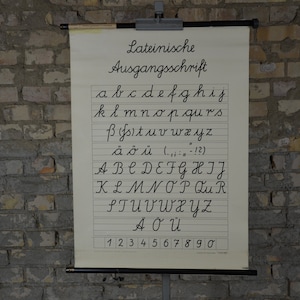 Lateinische
Ausgangsschrift
a b c d e f g h i j
k l m n o p qu r s
ß (ſs) t u v w x y z
ä ö ü ( . , , - „ " - ! ? )
A B C D E F G H I J
K L M N O P Qu R
S T U V W X Y Z
Ä Ö Ü
1 2 3 4 5 6 7 8 9 0